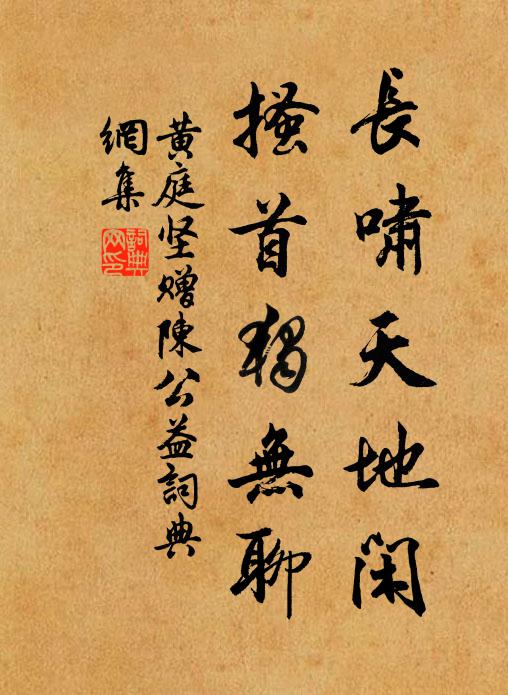 長嘯天地閑
搔首獨無聊
黄庭坚赠陳公益詞典
網集
詞典
网印